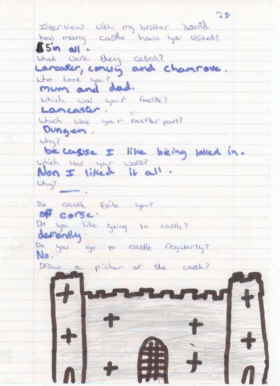 28
Interview with my brother David
how many castle have you visited?
5 in all.
What were they called?
Lancaster, conwy and chamrove.
Who took you?
mum and dad.
Which was your favrite?
Lancaster.
Which was your favrite part?
Dungen.
Why?
because I like being locked in.
Which was your worst?
Non I liked it all.
Why?
Do castle exite you?
off corse.
Do you like going to castle?
defenitly.
Do you go to castle regularly?
No.
Draw a picher of the castle?